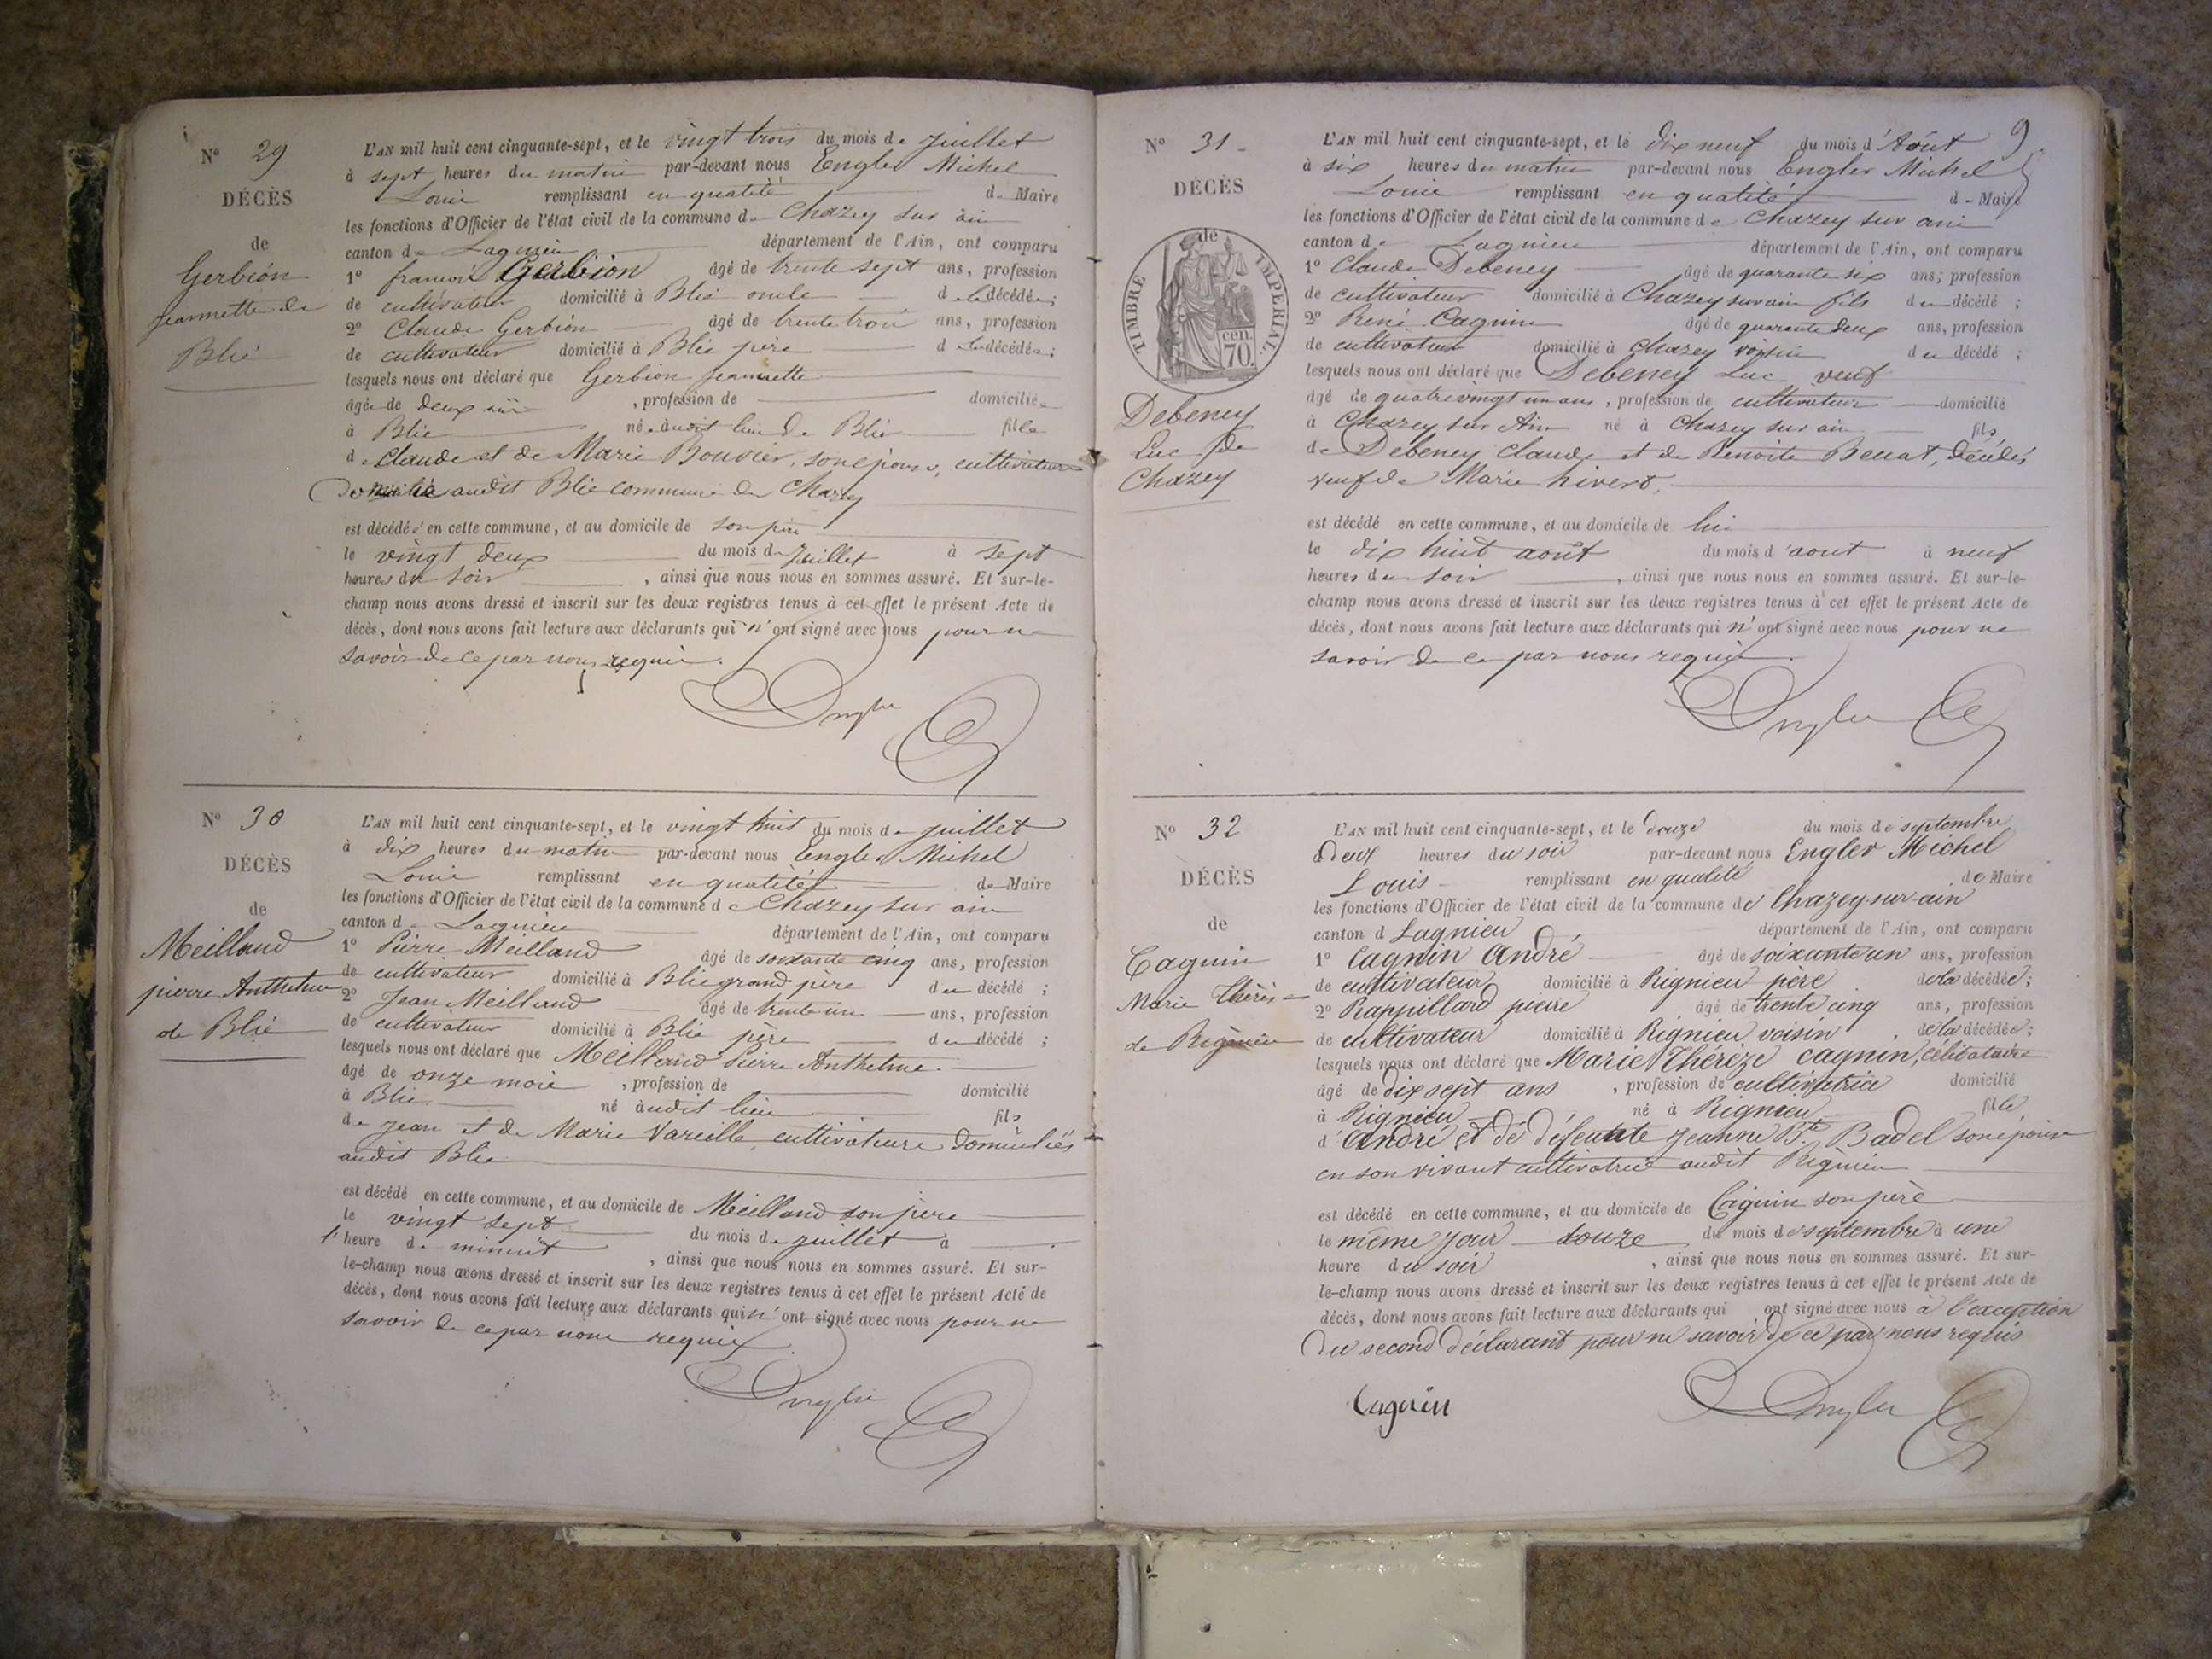 Nº 29
DÉCÈS
de
Gerbion
jeannette de
Blié
L'AN mil huit cent cinquante-sept, et le vingt trois du mois de juillet
à sept heures du matin par-devant nous Engler Michel
Louis remplissant en qualité de Maire
les fonctions d'Officier de l'état civil de la commune de Chazey sur ain
canton de Lagnieu département de l'Ain, ont comparu
1º françois Gerbion âgé de trente sept ans, profession
de cultivateur domicilié à Blié oncle de la décédée;
2º Claude Gerbion âgé de trente trois ans, profession
de cultivateur domicilié à Blié père de la décédée;
lesquels nous ont déclaré que Gerbion jeannette
âgée de deux ans, profession de domiciliée
à Blié née audit lieu de Blié fille
de Claude et de Marie Bouvier, son épouse, cultivateurs
audit Blié commune de Chazey
est décédée en cette commune, et au domicile de son père
le vingt deux du mois de juillet à sept
heures du soir, ainsi que nous nous en sommes assuré. Et sur-le-
champ nous avons dressé et inscrit sur les deux registres tenus à cet effet le présent Acte de
décès, dont nous avons fait lecture aux déclarants qui n'ont signé avec nous pour ne
savoir de ce par nous requis.
Engler
Nº 30
DÉCÈS
de
Meilland
pierre Anthelme
de Blié
L'AN mil huit cent cinquante-sept, et le vingt huit du mois de juillet
à dix heures du matin par-devant nous Engler Michel
Louis remplissant en qualité de Maire
les fonctions d'Officier de l'état civil de la commune de Chazey sur ain
canton de Lagnieu département de l'Ain, ont comparu
1º Pierre Meilland âgé de soixante cinq ans, profession
de cultivateur domicilié à Blié grand père du décédé;
2º Jean Meilland âgé de trente un ans, profession
de cultivateur domicilié à Blié père du décédé;
lesquels nous ont déclaré que Meilland Pierre Anthelme
âgé de onze mois, profession de domicilié
à Blié né audit lieu fils
de jean et de Marie Vareille cultivateurs domiciliés
audit Blié
est décédé en cette commune, et au domicile de Meilland son père
le vingt sept du mois de juillet à
l'heure de minuit, ainsi que nous nous en sommes assuré. Et sur-
le-champ nous avons dressé et inscrit sur les deux registres tenus à cet effet le présent Acte de
décès, dont nous avons fait lecture aux déclarants qui n'ont signé avec nous pour ne
savoir de ce par nous requis
Engler
9
Nº 31
DÉCÈS
de
TIMBRE IMPÉRIAL
cen.
70.
Debeney
Luc de
Chazey
L'AN mil huit cent cinquante-sept, et le dix neuf du mois d'Août
à six heures du matin par-devant nous Engler Michel
Louis remplissant en qualité de Maire
les fonctions d'Officier de l'état civil de la commune de Chazey sur ain
canton de Lagnieu département de l'Ain, ont comparu
1º Claude Debeney âgé de quarante six ans, profession
de cultivateur domicilié à Chazey sur ain fils du décédé;
2º René Cagnin âgé de quarante deux ans, profession
de cultivateur domicilié à Chazey voisin du décédé;
lesquels nous ont déclaré que Debeney Luc veuf
âgé de quatre vingt un ans, profession de cultivateur domicilié
à Chazey sur Ain né à Chazey sur ain fils
de Debeney Claude et de Benoite Benat, décédés
veuf de Marie hivert,
est décédé en cette commune, et au domicile de lui
le dix huit août du mois d'aout à neuf
heures du soir, ainsi que nous nous en sommes assuré. Et sur-le-
champ nous avons dressé et inscrit sur les deux registres tenus à cet effet le présent Acte de
décès, dont nous avons fait lecture aux déclarants qui n'ont signé avec nous pour ne
savoir de ce par nous requis.
Engler
Nº 32
DÉCÈS
de
Cagnin
Marie Thérès
de Rignieu
L'AN mil huit cent cinquante-sept, et le douze du mois de septembre
à deux heures du soir par-devant nous Engler Michel
Louis remplissant en qualité de Maire
les fonctions d'Officier de l'état civil de la commune de Chazey-sur-ain
canton d Lagnieu département de l'Ain, ont comparu
1º Cagnin André âgé de soixante un ans, profession
de cultivateur domicilié à Rignieu père de la décédée;
2º Rappillard pierre âgé de trente cinq ans, profession
de cultivateur domicilié à Rignieu voisin de la décédée;
lesquels nous ont déclaré que Marie Thérèze cagnin, célibataire
âgé de dix sept ans, profession de cultivatrice domicilié
à Rignieu né à Rignieu fille
d'André et de défeunte Jeanne Bte Badel son épouse
en son vivant cultivatrice audit Rignieu
est décédé en cette commune, et au domicile de Cagnin son père
le même jour douze du mois de septembre à une
heure du soir, ainsi que nous nous en sommes assuré. Et sur-
le-champ nous avons dressé et inscrit sur les deux registres tenus à cet effet le présent Acte de
décès, dont nous avons fait lecture aux déclarants qui ont signé avec nous à l'exception
du second déclarant pour ne savoir de ce par nous requis
Cagnin Engler